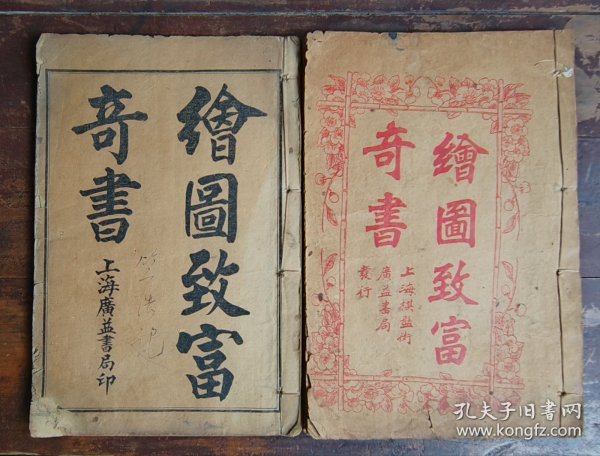 繪圖致富
奇書
上海廣益書局印
繪圖致富
奇書
上海棋盤街
廣益書局
發行
孔夫子旧书网
www.kongfz.com